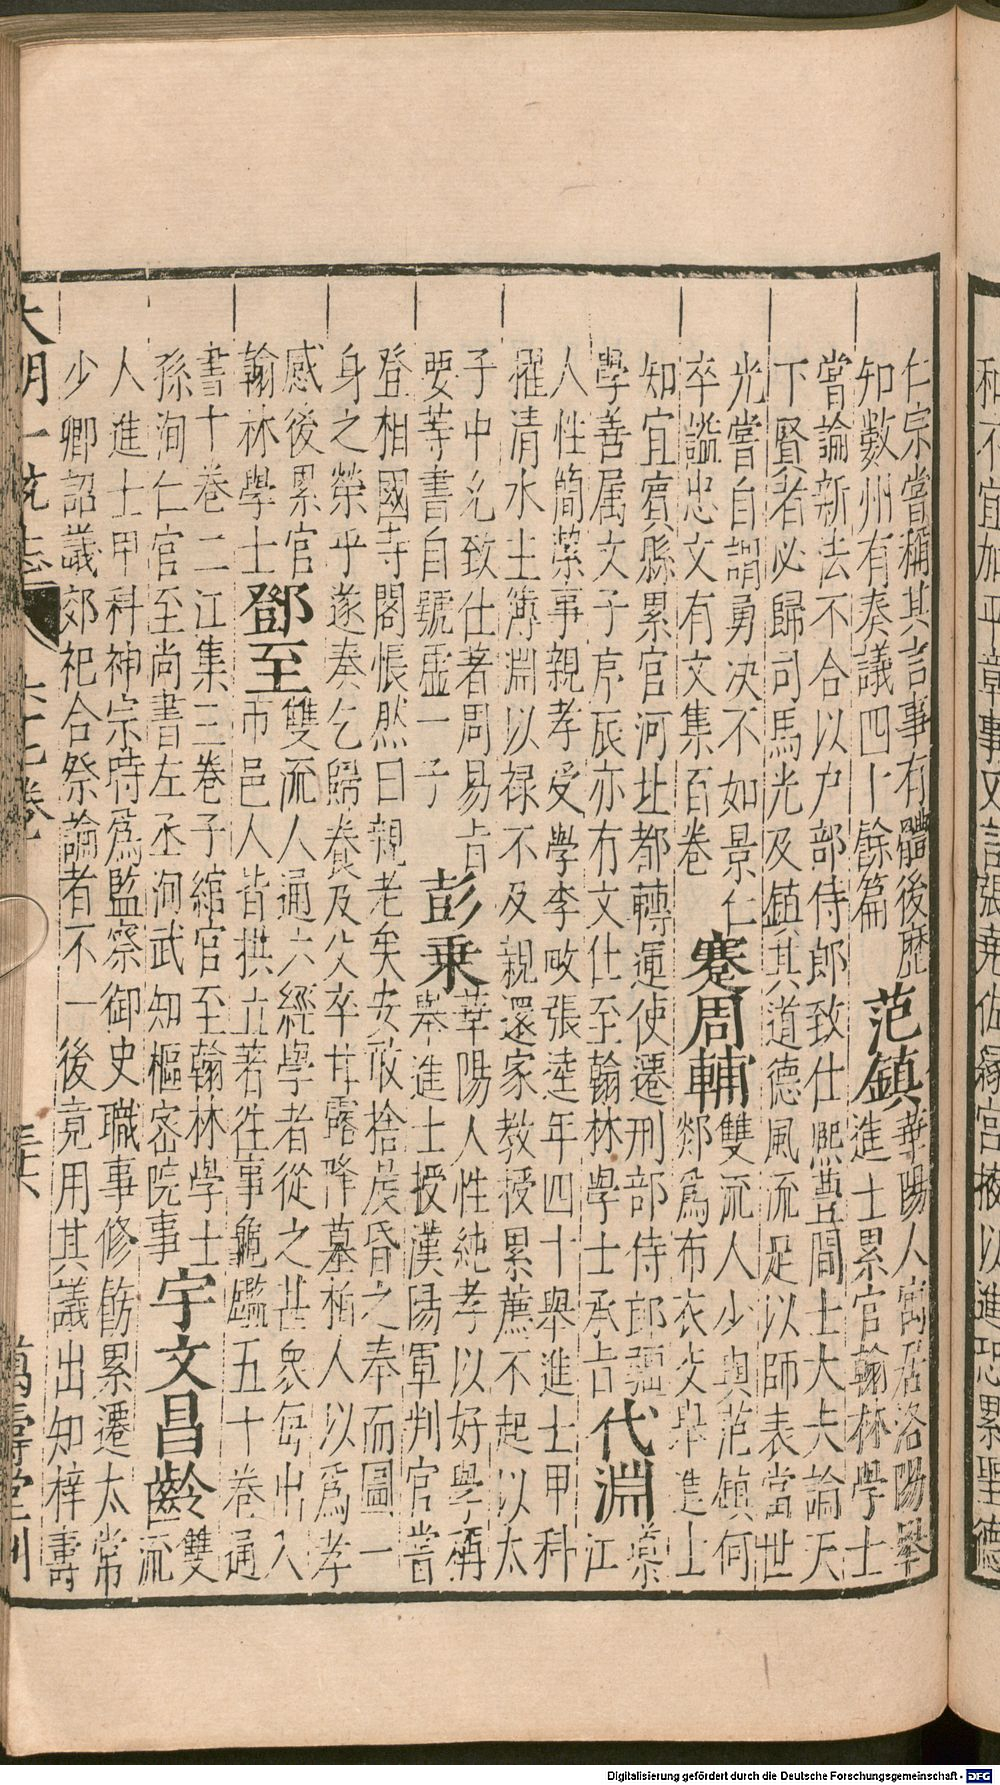 和不宜加平章事又言張堯佐縁宫掖以進恐累聖德
仁宗嘗稱其言事有體後歷
知數州有奏議四十餘篇
范鎮
華陽人寓居洛陽舉
進士累官翰林學士
嘗論新法不合以户部侍郎致仕熙豐間士大夫論天
下賢者必歸司馬光及鎮其道德風流足以師表當世
光嘗自謂勇决不如景仁
卒謚忠文有文集百卷
蹇周輔
雙流人少與范鎮何
郯爲布衣交舉進士
知宜賓縣累官河北都轉運使遷刑部侍郎彊
學善属文子序辰亦有文仕至翰林學士承㫖
代淵
導
江
人性簡潔事親孝受學李畋張逵年四十舉進士甲科
擢清水主簿淵以禄不及親還家教授累薦不起以太
子中允致仕著周易㫖
要等書自號虛一子
彭乗
華陽人性純孝以好學稱
舉進士授漢陽軍判官嘗
登相國寺閣悵然曰親老矣安敢捨晨昏之奉而圖一
身之榮乎遂奏乞歸養及父卒甘露降墓栢人以爲孝
感後累官
翰林學士
鄧至
雙流人通六經學者從之甚衆每出入
市邑人皆拱立著徃事龜鑑五十卷通
書十卷二江集三卷子綰官至翰林學士
孫洵仁官至尚書左丞洵武知樞宻院事
宇文昌齡
雙
流
人進士甲科神宗時爲監察御史職事修飭累遷太常
少卿詔議郊祀合祭論者不一後竟用其議出知梓夀
大明一統志 六十七卷 三十六 萬壽堂刊
Digitalisierung gefördert durch die Deutsche Forschungsgemeinschaft - DFG